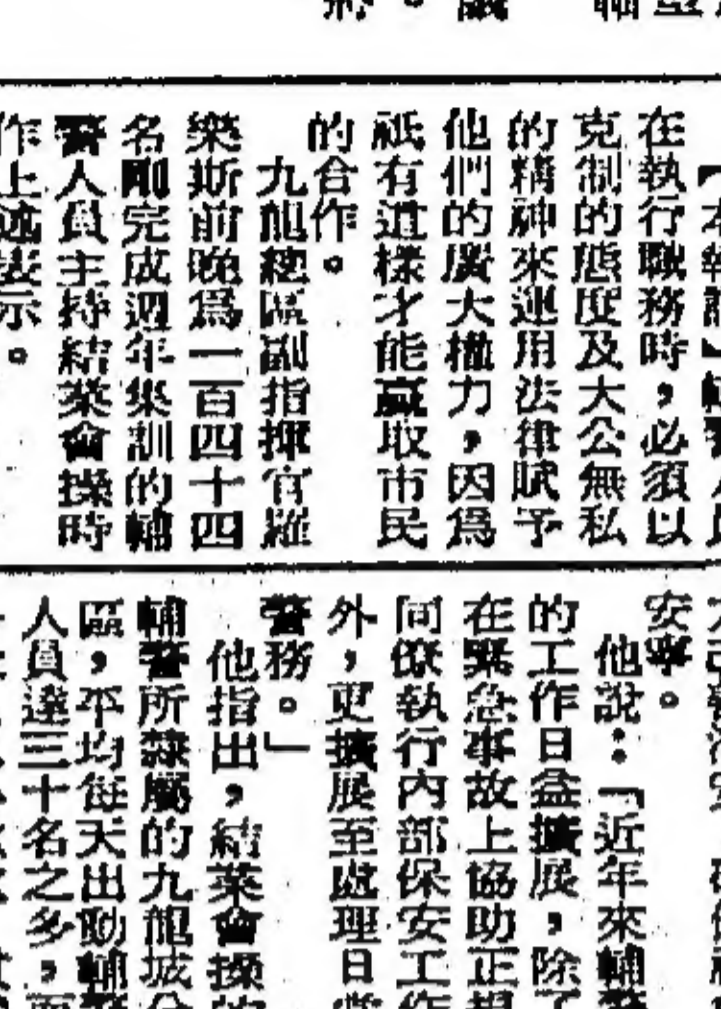 【本報訊】輔警人員
在執行職務時，必須以
克制的態度及大公無私
的精神來運用法律賦予
他們的廣大權力，因爲
祇有這樣才能贏取市民
的合作。
九龍總區副指揮官羅
樂斯前晚爲一百四十四
名剛完成週年集訓的輔
警人員主持結業會操時
作上述表示。
安寧。
他說：「近年來輔警
的工作日益擴展，除了
在緊急事故上協助正規
同僚執行內部保安工作
外，更擴展至處理日常
警務。」
他指出，結業會操的
輔警所隸屬的九龍城分
區，平均每天出動輔警
人員達三十名之多，而